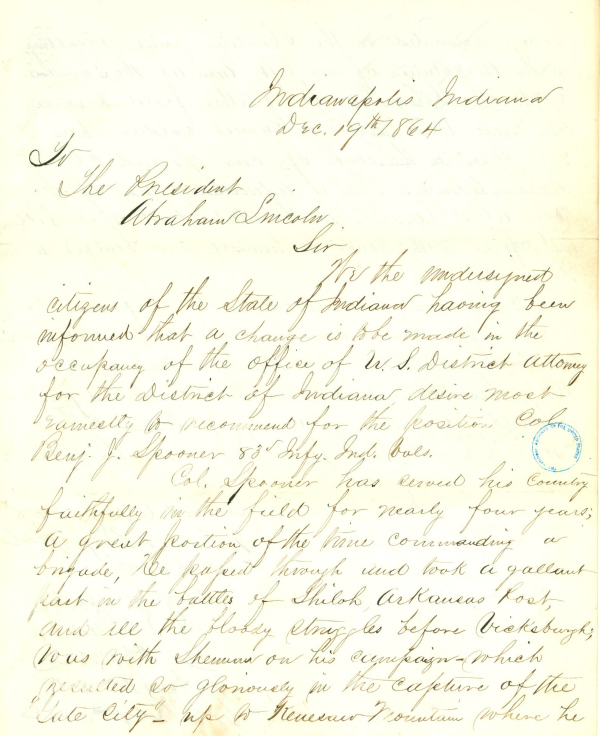 Indianapolis Indiana
Dec. 19th 1864
To
The President
Abraham Lincoln
Sir
We the undersigned
citizens of the State of Indiana having been
informed that a change is to be made in the
occupancy of the office of U. S. District Attorney
for the District of Indiana, desire most
earnestly to recommend for the position Col
Benj. J. Spooner 83d Infy. Ind. Vols.
Col. Spooner has served his Country
faithfully in the field for nearly four years;
a great portion of the time commanding a
brigade, He passed through and took a gallant
part in the battles of Shiloh, Arkansas Post,
and all the bloody struggles before Vicksburgh;
was with Sherman on his campaign - which
resulted so gloriously in the capture of the
"Gate City" - up to Kenesaw Mountain where he